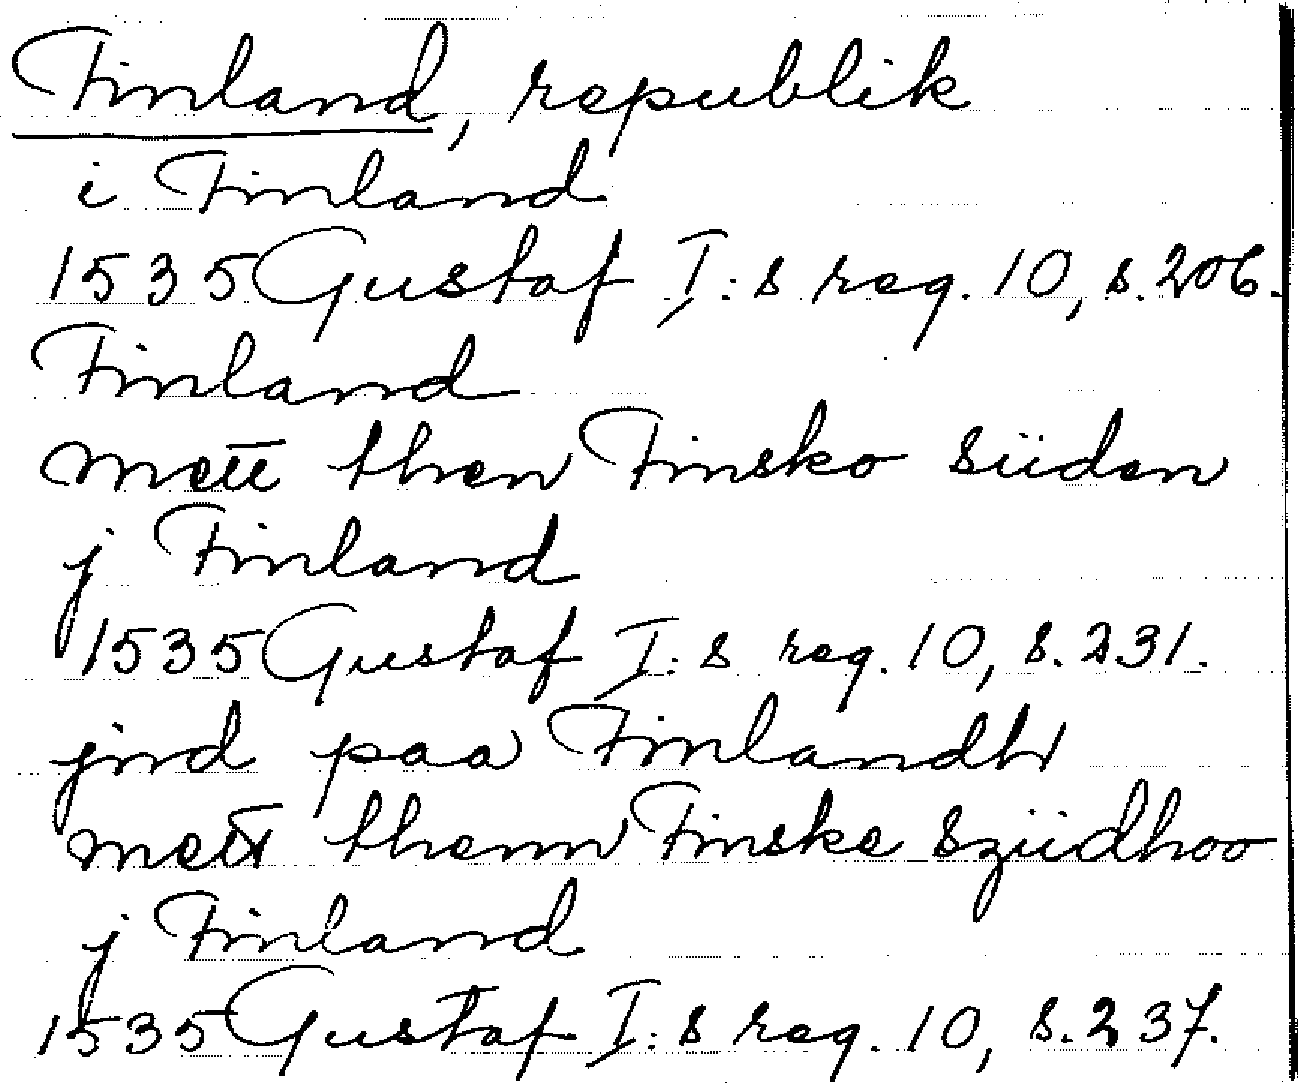 Finland, republik
i Finland
1535 Gustaf I:s reg. 10, s. 206.
Finland
mett then Finsko siiden
j Finland
1535 Gustaf I:s reg. 10, s. 231.
jnd paa Finlandh
mett thenn Finske sziidhoo
j Finland
1535 Gustaf I:s reg. 10, s. 237.